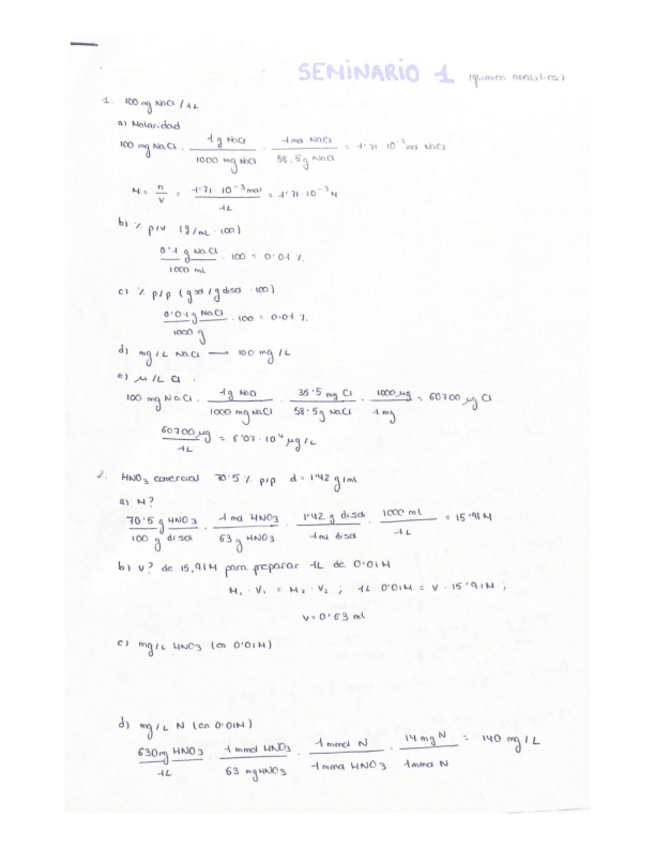 SEMINARIO 1 (química analítica)
1. 100 mg NaCl / 1L
a) Molaridad
100 mg NaCl · 1 g NaCl / 1000 mg NaCl · 1 mol NaCl / 58.5 g NaCl = 1'71 · 10⁻³ mol NaCl
M = n / V = 1'71 · 10⁻³ mol / 1L = 1'71 · 10⁻³ M
b) % p/v (g/mL · 100)
0'1 g NaCl / 1000 mL · 100 = 0'01 %.
c) % p/p (g sol / g disol · 100)
0'01 g NaCl / 1000 g · 100 = 0'01 %.
d) mg/L NaCl → 100 mg/L
e) μ/L Cl.
100 mg NaCl · 1 g NaCl / 1000 mg NaCl · 35'5 mg Cl / 58'5 g NaCl · 1000 μg / 1 mg = 60700 μg Cl
60700 μg / 1L = 6'07 · 10⁴ μg/L
2. HNO₃ comercial 70'5 % p/p d = 1'42 g/ml
a) M?
70'5 g HNO3 / 100 g disol · 1 mol HNO3 / 63 g HNO3 · 1'42 g disol / 1 ml disol · 1000 ml / 1L = 15'91 M
b) V? de 15,91M para preparar 1L de 0'01M
M₁ · V₁ = M₂ · V₂ ; 1L 0'01M = V · 15'91M ;
V = 0'63 ml
c) mg/L HNO3 (en 0'01M)
d) mg/L N (en 0'01M)
630mg HNO3 / 1L · 1 mmol HNO3 / 63 mg HNO3 · 1 mmol N / 1 mmol HNO3 · 14 mg N / 1 mmol N = 140 mg/L